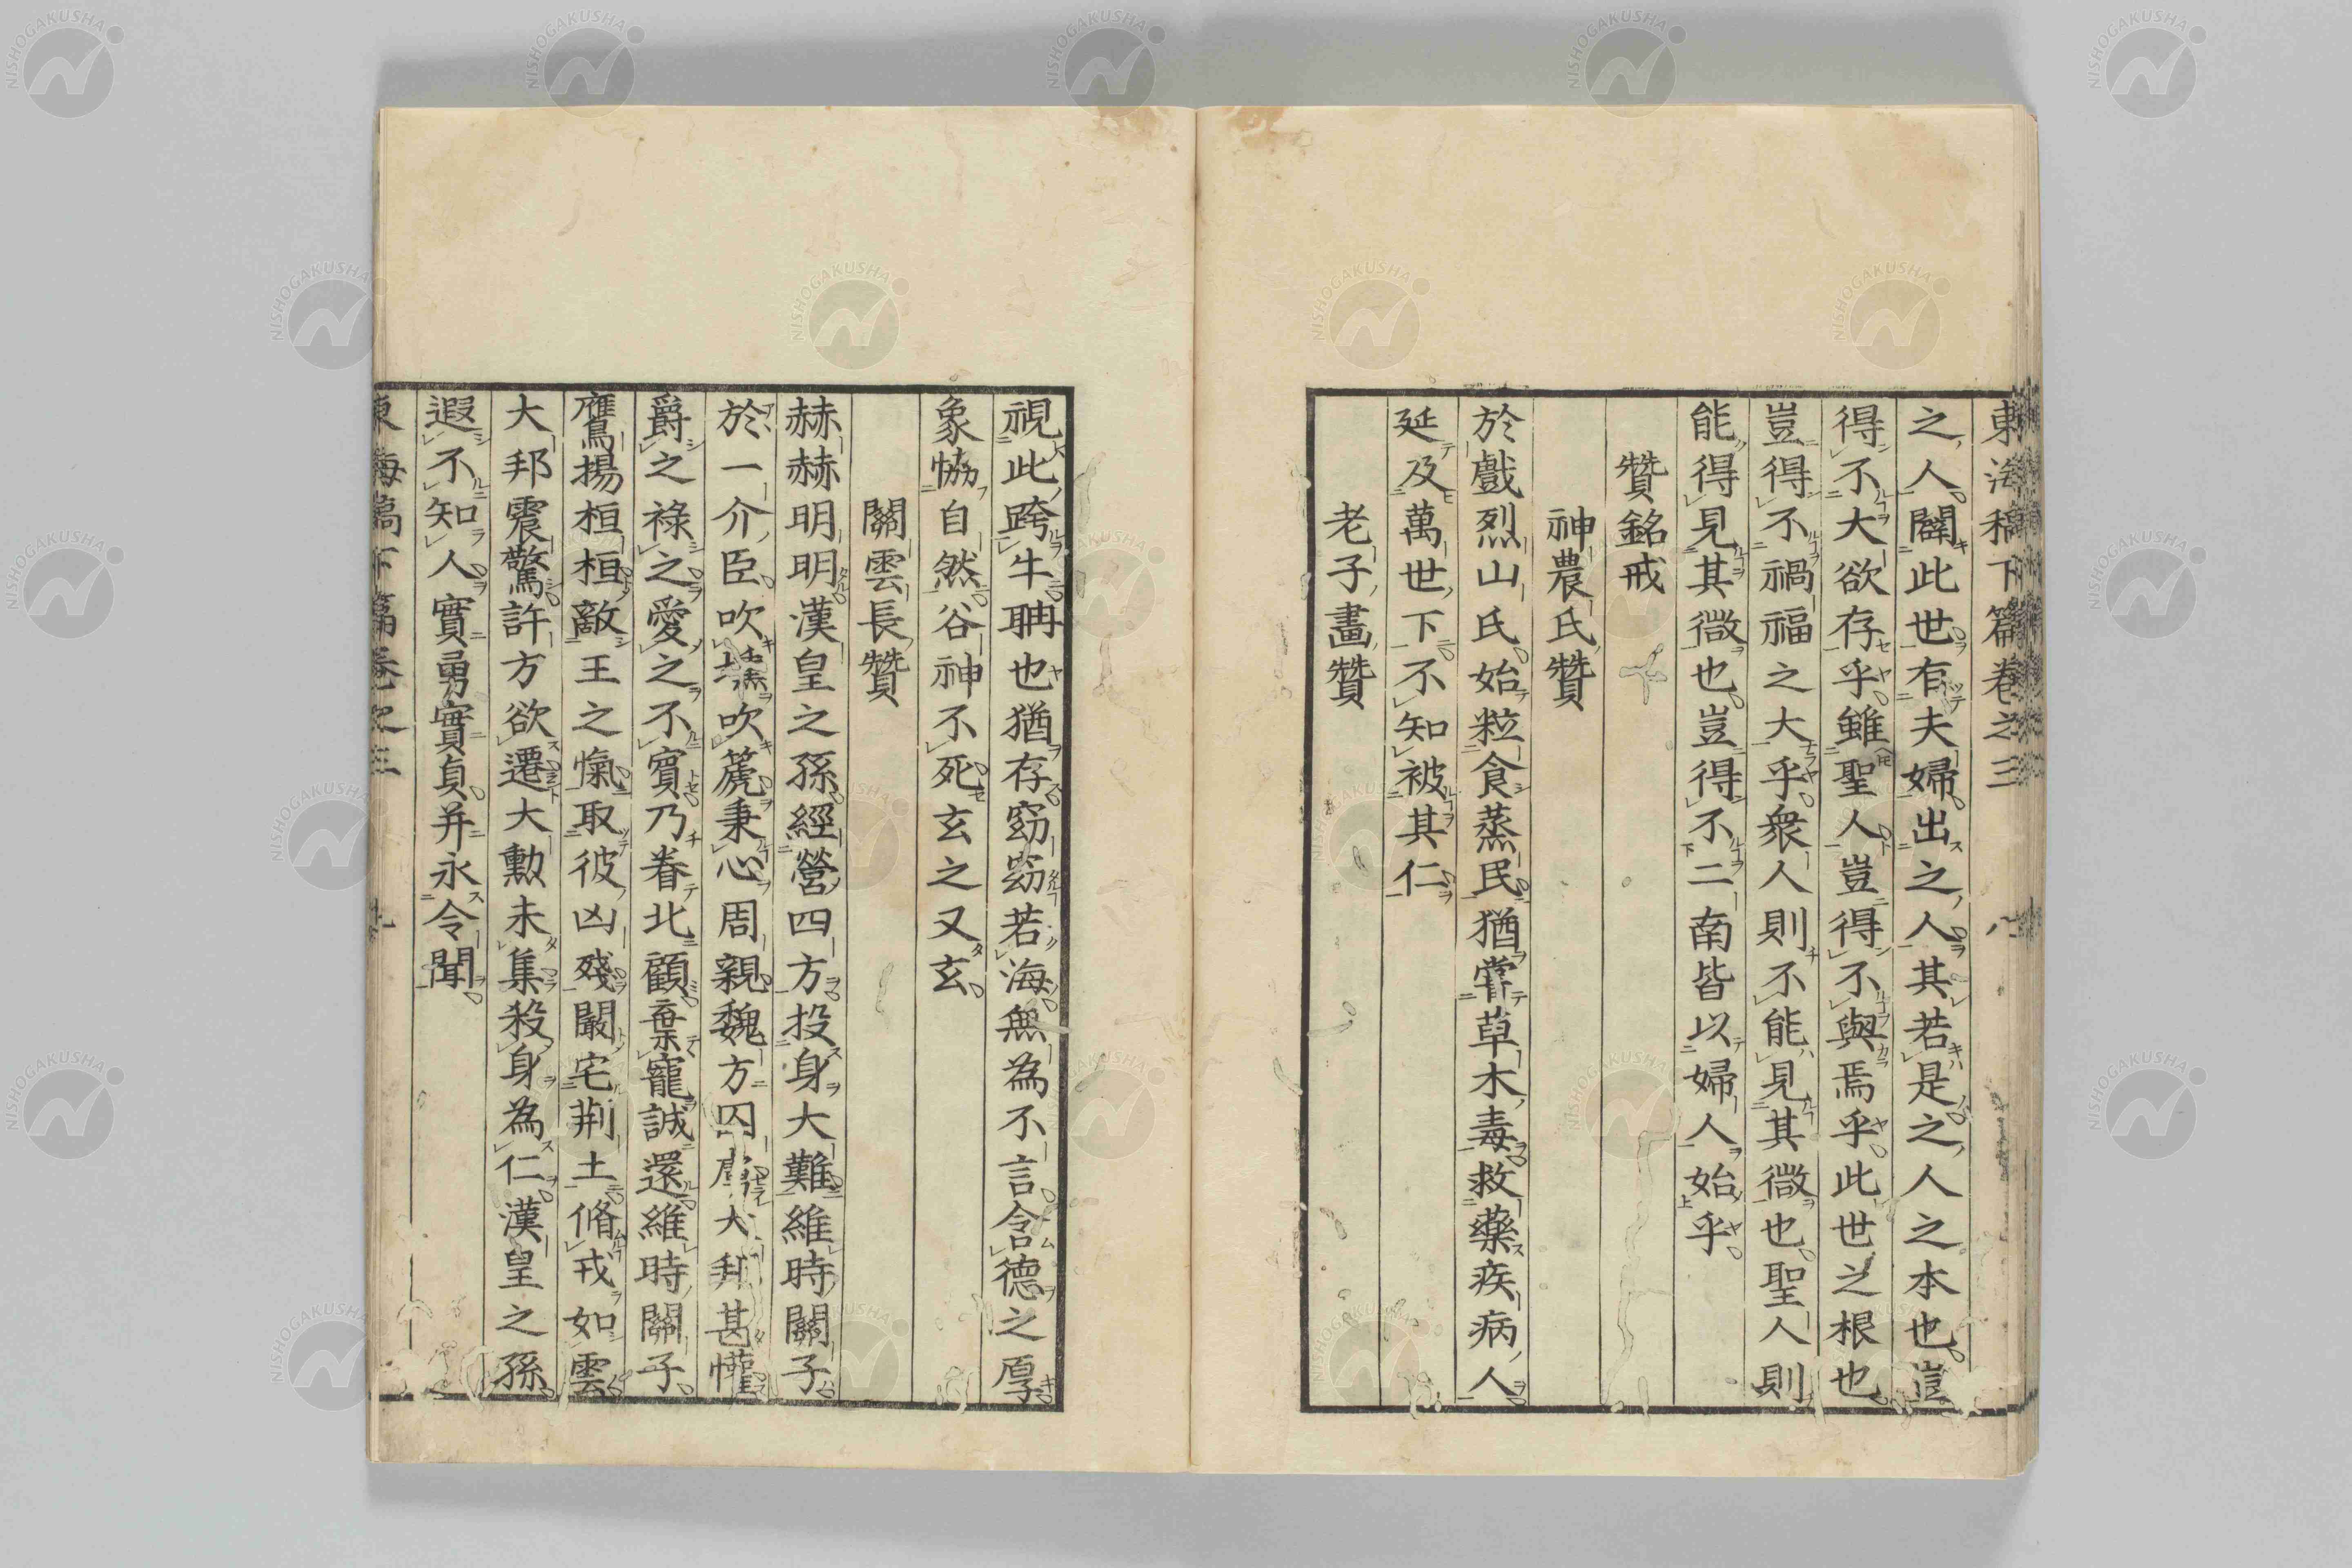 東海稿下篇卷之三 八
之人闢此世有夫婦出之人其若是之人之本也豈
得不大欲存乎雖聖人豈得不與焉乎此世之根也
豈得不禍福之大乎衆人則不能見其微也聖人則
能得見其微也豈得不二南皆以婦人始乎
贊銘戒
神農氏贊
於戲烈山氏始粒食蒸民猶嘗草木毒救藥疾病人
延及萬世下不知被其仁
老子畫贊
視此跨牛聃也猶存窈窈若海無為不言含德之厚
象恊自然谷神不死玄之又玄
關雲長贊
赫赫明明漢皇之孫經營四方投身大難維時關子
於一介臣吹壎吹篪秉心周親魏方囚虜大邦甚懽
爵之祿之愛之不賓乃眷北顧棄寵誠還維時關子
鷹揚桓桓敵王之愾取彼凶殘闞宅荆土脩戎如雲
大邦震驚許方欲遷大勳未集殺身為仁漢皇之孫
遐不知人實勇實貞并永令聞
東海稿下篇卷之三 九
NISHOGAKUSHA